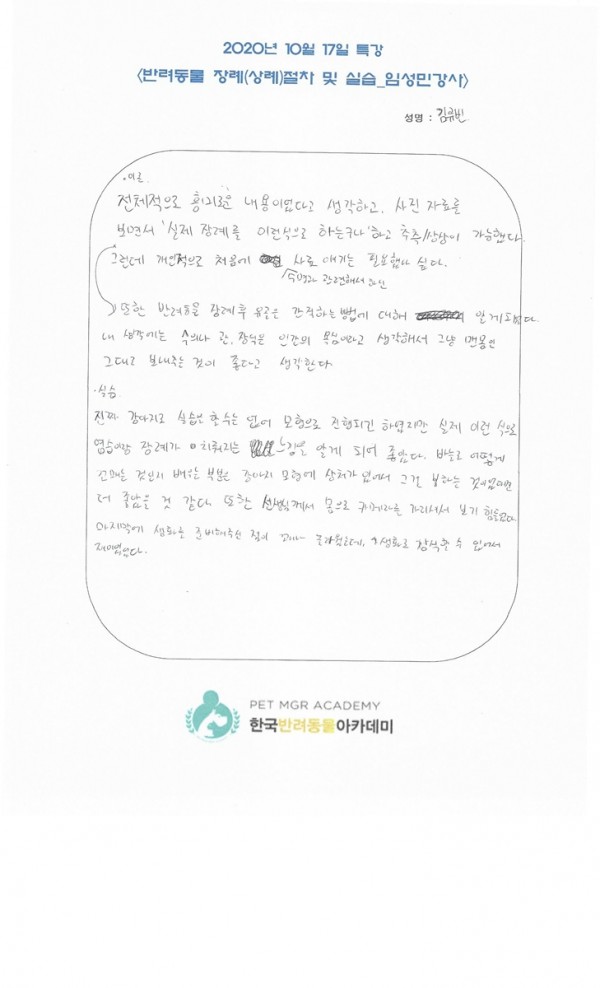 2020년 10월 17일 특강
<반려동물 장례(상례)절차 및 실습_임성민강사>
성명 : 김유빈
·이론
전체적으로 흥미로운 내용이었다고 생각하고, 사진 자료를
보면서 '실제 장례를 이런식으로 하는구나'하고 추측/상상이 가능했다.
그런데 개인적으로 처음에 사료 얘기는 필요했나 싶다.
수명과 관련해서
또한 반려동물 장례후 유골은 간직하는 방법에 대해 알게되었다.
내 생각에는 수의나 관, 장식은 인간의 욕심이라고 생각해서 그냥
그대로 보내주는 것이 좋다고 생각한다
·실습
진짜 강아지로 실습은 할 수는 없어 모형으로 진행되긴 하였지만 실제 이런 식으로
염습이랑 장례가 치뤄지는 느낌을 알게 되어 좋았다. 바늘로 어떻게
꼬매는 것인지 배우는 부분은 강아지 모형에 상처가 없어서 그걸 봉하는 것이었으면
더 좋았을 것 같다. 또한 선생님께서 몸으로 카메라를 가리셔서 보기 힘들었다
마지막에 생화를 준비해주신 점이 놀라웠는데, 생화로 장식할 수 있어서
재미있었다.
PET MGR ACADEMY
한국반려동물아카데미